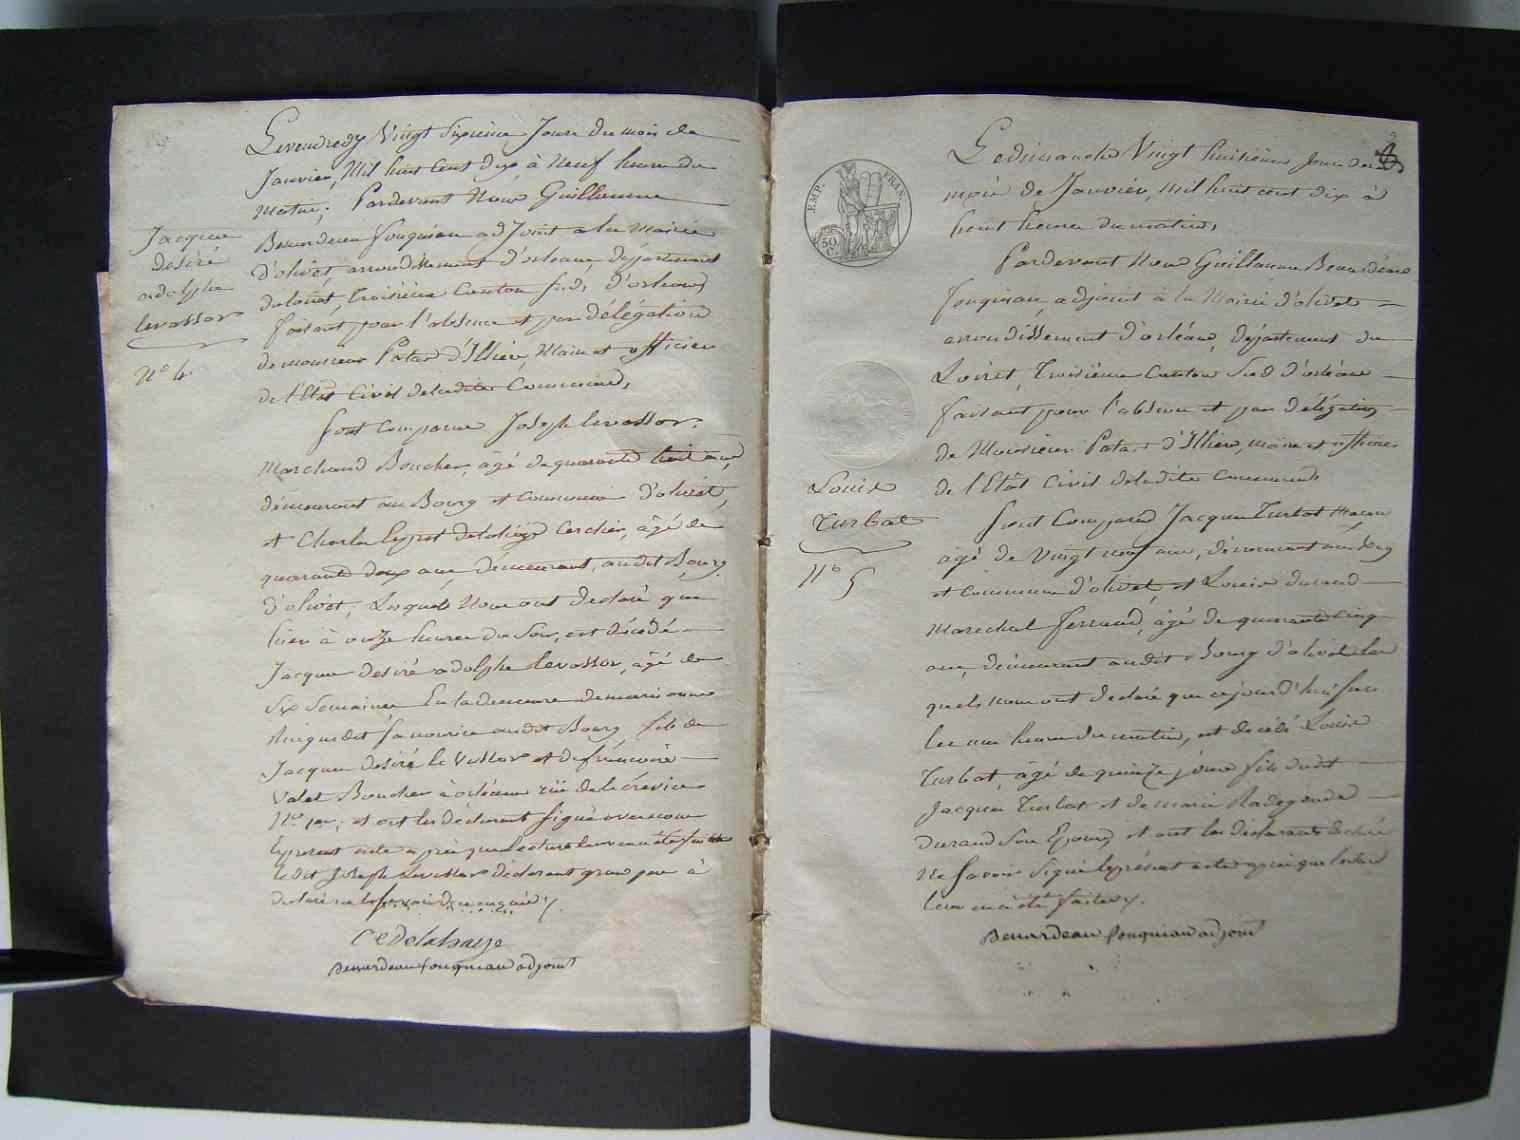 Le vendredy Vingt Sixieme Jour du mois de
Janvier, Mil huit Cent dix à Neuf heure du
matin; Pardevant Nous Guillaume
Jacque
désiré
adolphe
levassor
N° 4.
Benardeau fouqueau adjoint a la Mairie
d'olivet, arrondissement d'orleans, departement
du loiret, Troisième Canton Sud, d'orleans
faisant pour l'absence et par délégation
de monsieur Patas d'Illier, Maire et officier
de l'Etat Civil de ladite Commune,
Sont Comparus Joseph levassor
Marchand Boucher, âgé de quarante huit ans,
démeurant au Bourg et Commune d'olivet,
et Charle Cerclier, âgé de
quarante deux ans, demeurant, audit Bourg
d'olivet, Lesquels Nous ont declaré que
hier à onze heures du Soir, est décédé
Jacque desiré adolphe levassor, âgé de
Six Semaines En la demeure de marianne
sa nourice audit Bourg, fils de
Jacque desiré le Vassor et de francoise
Valet Boucher à orleans rüe de la
N° 1er; et ont les déclarant Signé avec nous
le present acte après que lecture leur en a été faitte
ledit Joseph Levassor déclarant grand pere à
declaré ne Savoir
Benardeau fouqueau adjoint
2
EMP. FRAN.
50 C.
Le dimanche Vingt huitième Jour du
mois de Janvier, Mil huit cent dix à
huit heure du matin,
Pardevant Nous Guillaume Benardeau
fouqueau, adjoint à la Mairie d'olivet
arrondissement d'orléans, departement du
Loiret, Troisième Canton Sud d'orléans
faisant pour l'absence et par délégation
de Monsieur Patas d'Illier, maire et officier
de l'Etat Civil de ladite Commune
Louis
Turbat
N° 5
Sont Comparus Jacque Turbat Macon
âgé de vingt neuf ans, démeurant au Bourg
et Commune d'olivet, et Louis durand
Marechal Ferrand, âgé de quarante cinq
ans, démeurant audit Bourg d'olivet les
quels nous ont declaré que ce jourd'hui
heure du matin, est décédé Louis
Turbat, âgé de quinze jours fils dudit
Jacque Turbat et de marie Radegonde
durand Son Epouse et ont les déclarants declaré
Ne Savoir Signé le présent acte après que lecture
leur en a été faite
Benardeau fouqueau adjoint